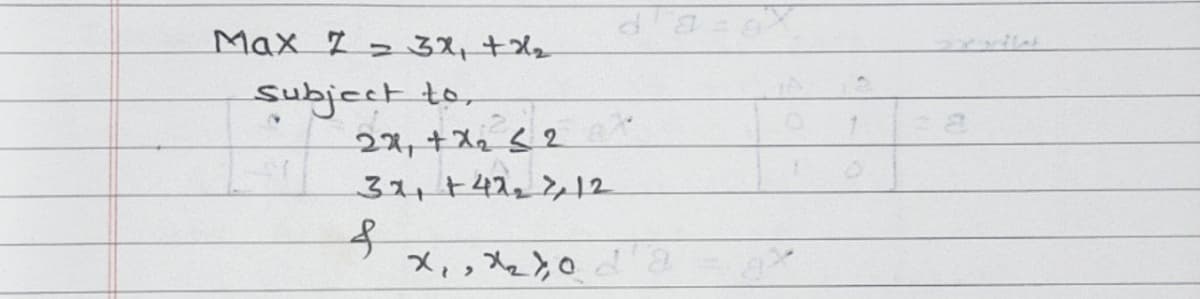 Max Z = 3x₁ + x₂
subject to,
2x₁ + x₂ ≤ 2
3x₁ + 4x₂ ≥ 12
&
x₁, x₂ ≥ 0